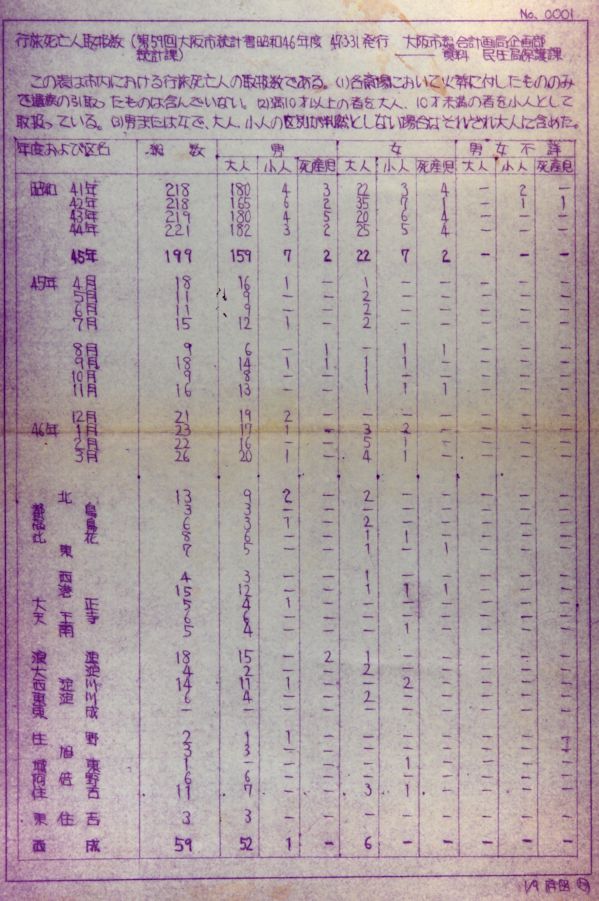 No. 0001
行旅死亡人取扱数 (第59回大阪市統計書昭和46年度 47.3.31発行 大阪市総合計画局企画部
統計課) —— 資料 民生局保護課
この表は市内における行旅死亡人の取扱数である。(1)各斎場において火葬に付したもののみ
で遺族の引取ったものは含んでいない。(2)満10才以上の者を大人、10才未満の者を小人として
取扱っている。(3)男または女で、大人、小人の区別が判然としない場合はそれぞれ大人に含めた。
年度および区名 総数 男 女 男女不詳
大人 小人 死産児 大人 小人 死産児 大人 小人 死産児
昭和 41年 218 180 4 3 22 3 4 — 2 —
42年 218 165 6 2 35 7 1 — 1 1
43年 219 180 4 5 20 6 4 — — —
44年 221 182 3 2 25 5 4 — — —
45年 199 159 7 2 22 7 2 — — —
45年 4月 18 16 1 — 1 — — — — —
5月 11 9 — — 2 — — — — —
6月 11 9 — — 2 — — — — —
7月 15 12 1 — 2 — — — — —
8月 9 6 — 1 — 1 1 — — —
9月 18 14 1 1 1 1 — — — —
10月 9 8 — — 1 — — — — —
11月 16 13 — — 1 1 1 — — —
12月 21 19 2 — — — — — — —
46年 1月 23 17 1 — 3 2 — — — —
2月 22 16 — — 5 1 — — — —
3月 26 20 1 — 4 1 — — — —
北 13 9 2 — 2 — — — — —
都島 3 3 — — — — — — — —
福島 6 3 1 — 2 — — — — —
此花 8 6 — — 1 1 — — — —
東 7 5 — — 1 — 1 — — —
西 4 3 — — 1 — — — — —
港 15 12 — — 1 1 1 — — —
大正 5 4 1 — — — — — — —
天王寺 6 6 — — — — — — — —
南 5 4 — — — 1 — — — —
浪速 18 15 — 2 1 — — — — —
大淀 4 2 — — 2 — — — — —
西淀川 14 11 1 — — 2 — — — —
東淀川 6 4 — — 2 — — — — —
東成 — — — — — — — — — —
生野 2 1 1 — — — — —
旭 3 3 — — — — — — — —
城東 1 — — — — 1 — — — —
阿倍野 6 6 — — — — — — — —
住吉 11 7 — — 3 1 — — — —
東住吉 3 3 — — — — — — — —
西成 59 52 1 — 6 — — — — —